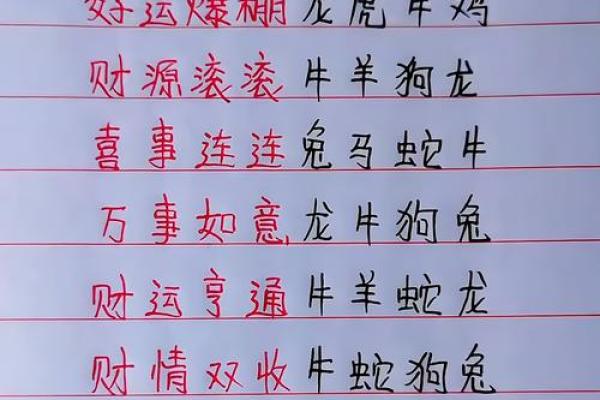 好运爆棚龙虎牛鸡
财源滚滚牛羊狗龙
喜事连连兔马蛇牛
万事如意,龙牛狗兔
财运亨通牛羊蛇龙
财情双收牛蛇狗兔